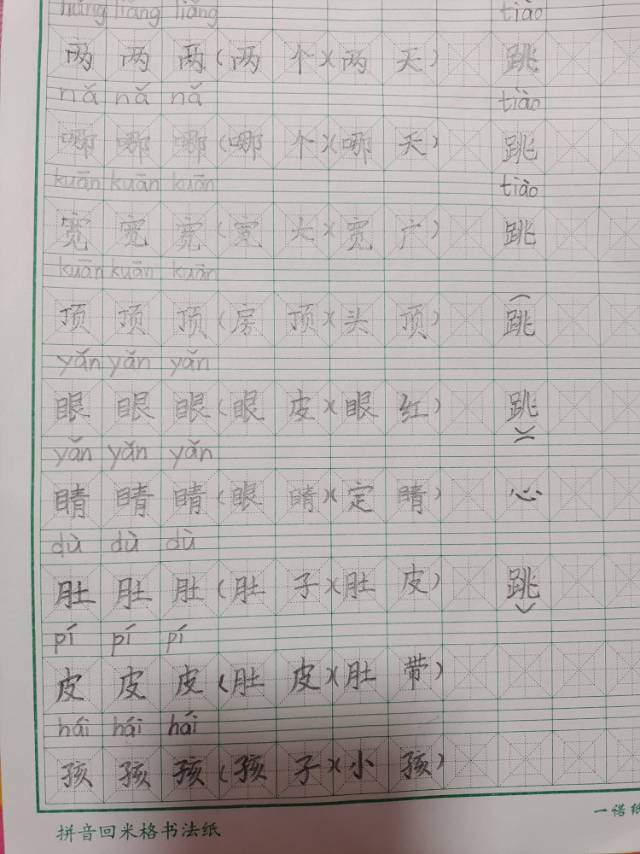 liǎng liǎng liǎng tiào
两 两 两 (两 个)(两 天) 跳
nǎ nǎ nǎ tiào
哪 哪 哪 (哪 个)(哪 天) 跳
kuān kuān kuān tiào
宽 宽 宽 (宽 大)(宽 广) 跳
kuān kuān kuān
顶 顶 顶 (房 顶)(头 顶) (跳
yǎn yǎn yǎn
眼 眼 眼 (眼 皮)(眼 红) 跳)
yǎn yǎn yǎn
睛 睛 睛 (眼 睛)(定 睛) (心
dù dù dù
肚 肚 肚 (肚 子)(肚 皮) 跳)
pí pí pí
皮 皮 皮 (肚 皮)(肚 带)
hái hái hái
孩 孩 孩 (孩 子)(小 孩)
拼音回米格书法纸 一诺纸